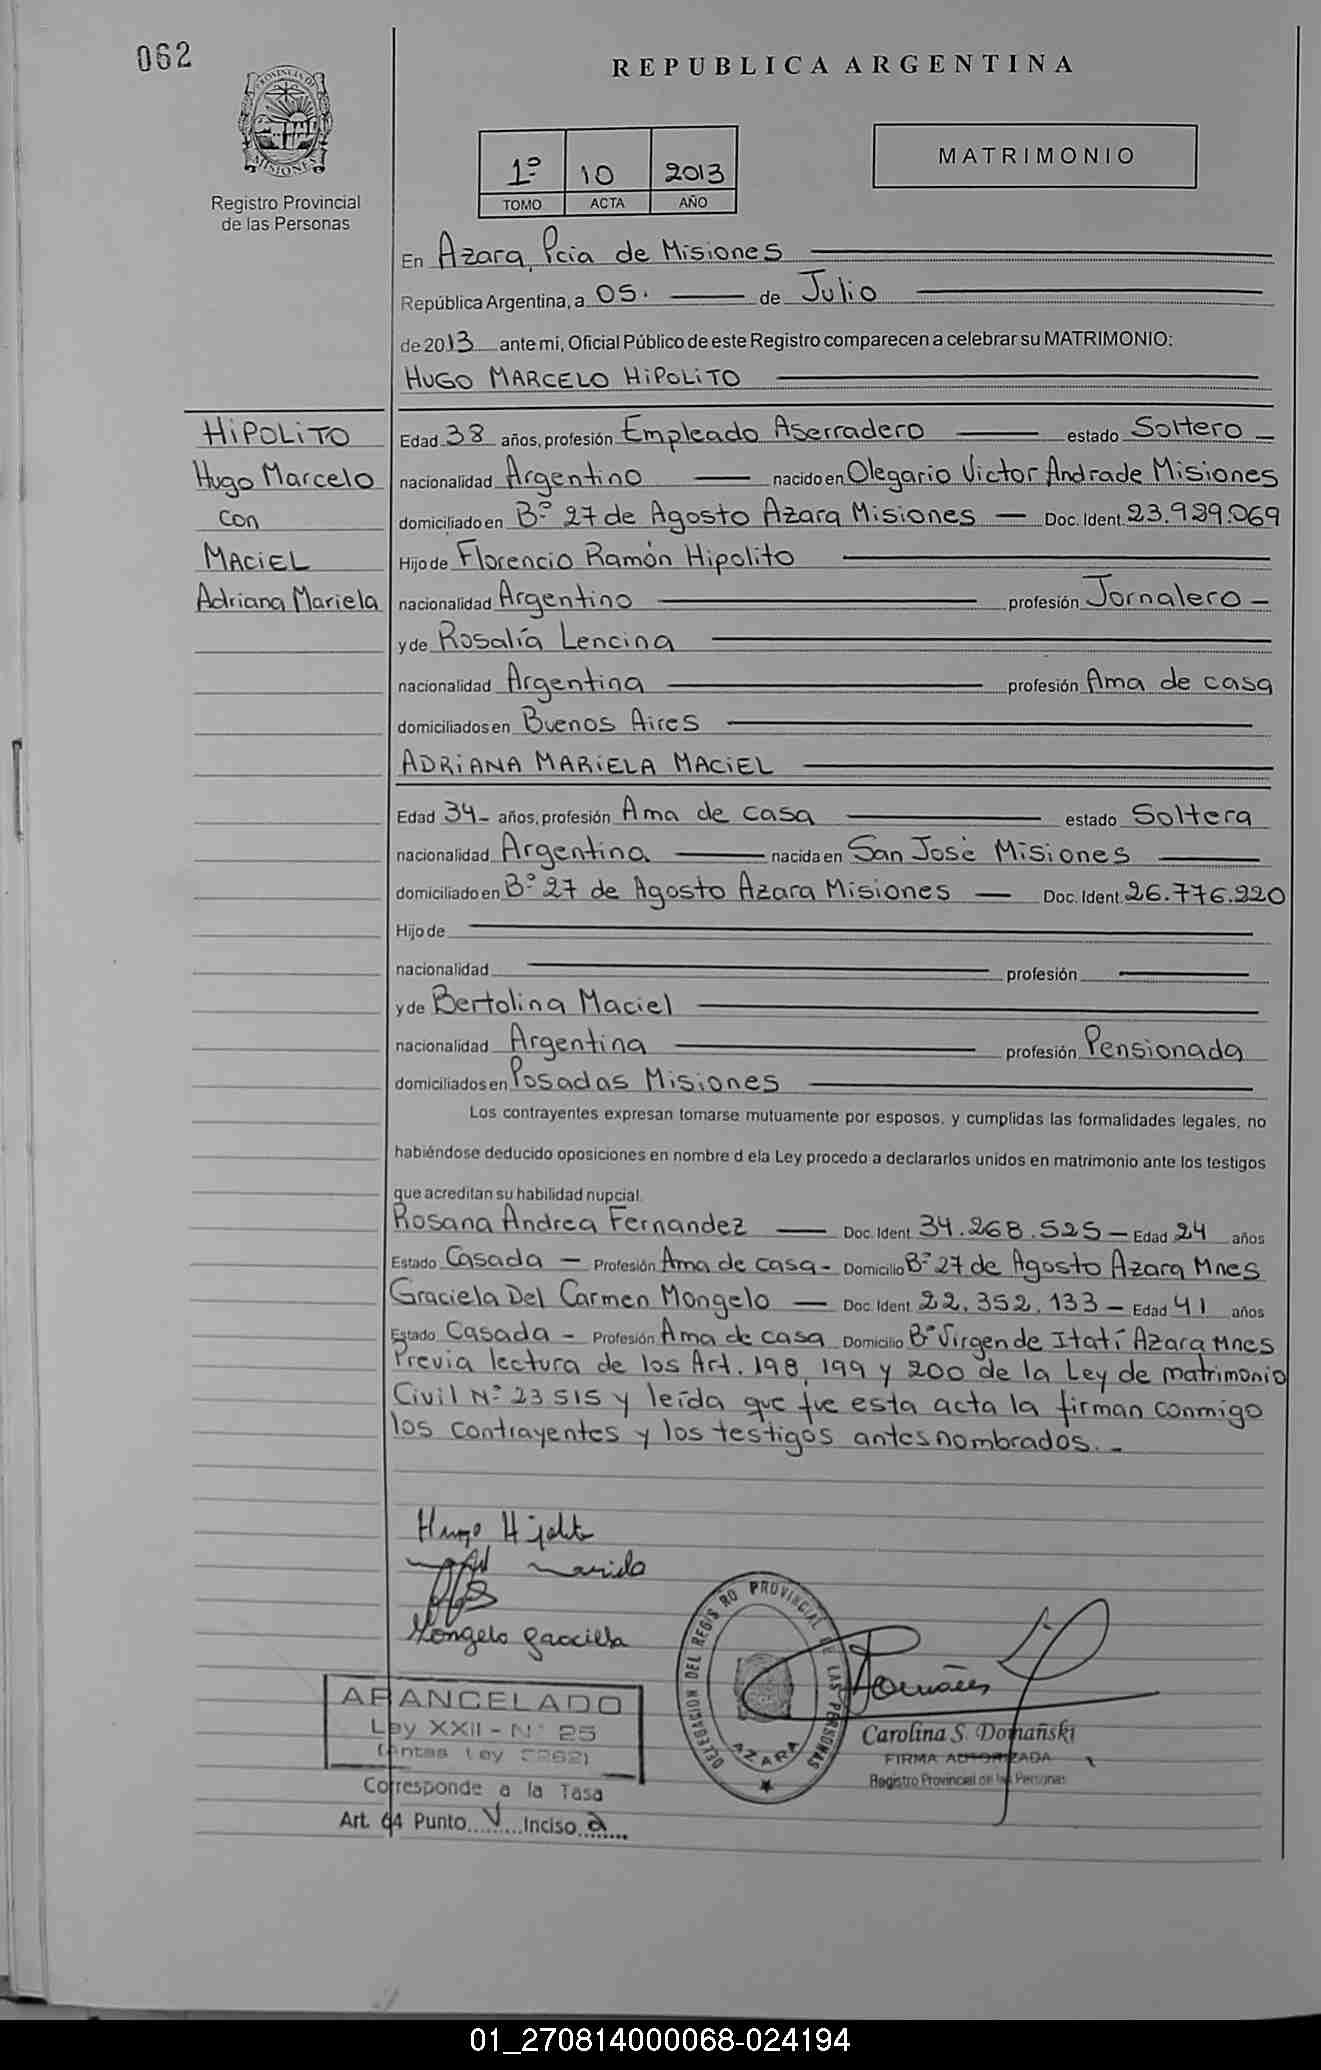 062
PROVINCIA DE
MISIONES
Registro Provincial
de las Personas
REPUBLICA ARGENTINA
1º 10 2013
TOMO ACTA AÑO
MATRIMONIO
En Azara, Pcia de Misiones
República Argentina, a 05. de Julio
de 2013 ante mi, Oficial Público de este Registro comparecen a celebrar su MATRIMONIO:
HUGO MARCELO HIPOLITO
HIPOLITO
Hugo Marcelo
con
MACIEL
Adriana Mariela
Edad 38 años, profesión Empleado Aserradero estado Soltero
nacionalidad Argentino nacido en Olegario Victor Andrade Misiones
domiciliado en Bº 27 de Agosto Azara Misiones Doc. Ident. 23.929.069
Hijo de Florencio Ramón Hipolito
nacionalidad Argentino profesión Jornalero
y de Rosalía Lencina
nacionalidad Argentina profesión Ama de casa
domiciliados en Buenos Aires
ADRIANA MARIELA MACIEL
Edad 34 años, profesión Ama de casa estado Soltera
nacionalidad Argentina nacida en San José Misiones
domiciliado en Bº 27 de Agosto Azara Misiones Doc. Ident. 26.776.220
Hijo de
nacionalidad profesión
y de Bertolina Maciel
nacionalidad Argentina profesión Pensionada
domiciliados en Posadas Misiones
Los contrayentes expresan tomarse mutuamente por esposos, y cumplidas las formalidades legales, no
habiéndose deducido oposiciones en nombre d ela Ley procedo a declararlos unidos en matrimonio ante los testigos
que acreditan su habilidad nupcial.
Rosana Andrea Fernandez Doc. Ident. 34.268.525 Edad 24 años
Estado Casada Profesión Ama de casa Domicilio Bº 27 de Agosto Azara Mnes
Graciela Del Carmen Mongelo Doc. Ident. 22.352.133 Edad 41 años
Estado Casada Profesión Ama de casa Domicilio Bº Virgen de Itatí Azara Mnes
Previa lectura de los Art. 198, 199 y 200 de la Ley de matrimonio
Civil Nº 23515 y leída que fue esta acta la firman conmigo
los contrayentes y los testigos antes nombrados.
Hugo Hipolito
Mongelo Graciela
DELEGACION DEL REGISTRO PROVINCIAL DE LAS PERSONAS
AZARA
ARANCELADO
Ley XXII - Nº 25
(Antes Ley 5262)
Corresponde a la Tasa
Art. 64 Punto V Inciso a
Carolina S. Domañski
FIRMA AUTORIZADA
Registro Provincial de las Personas
01_270814000068-024194